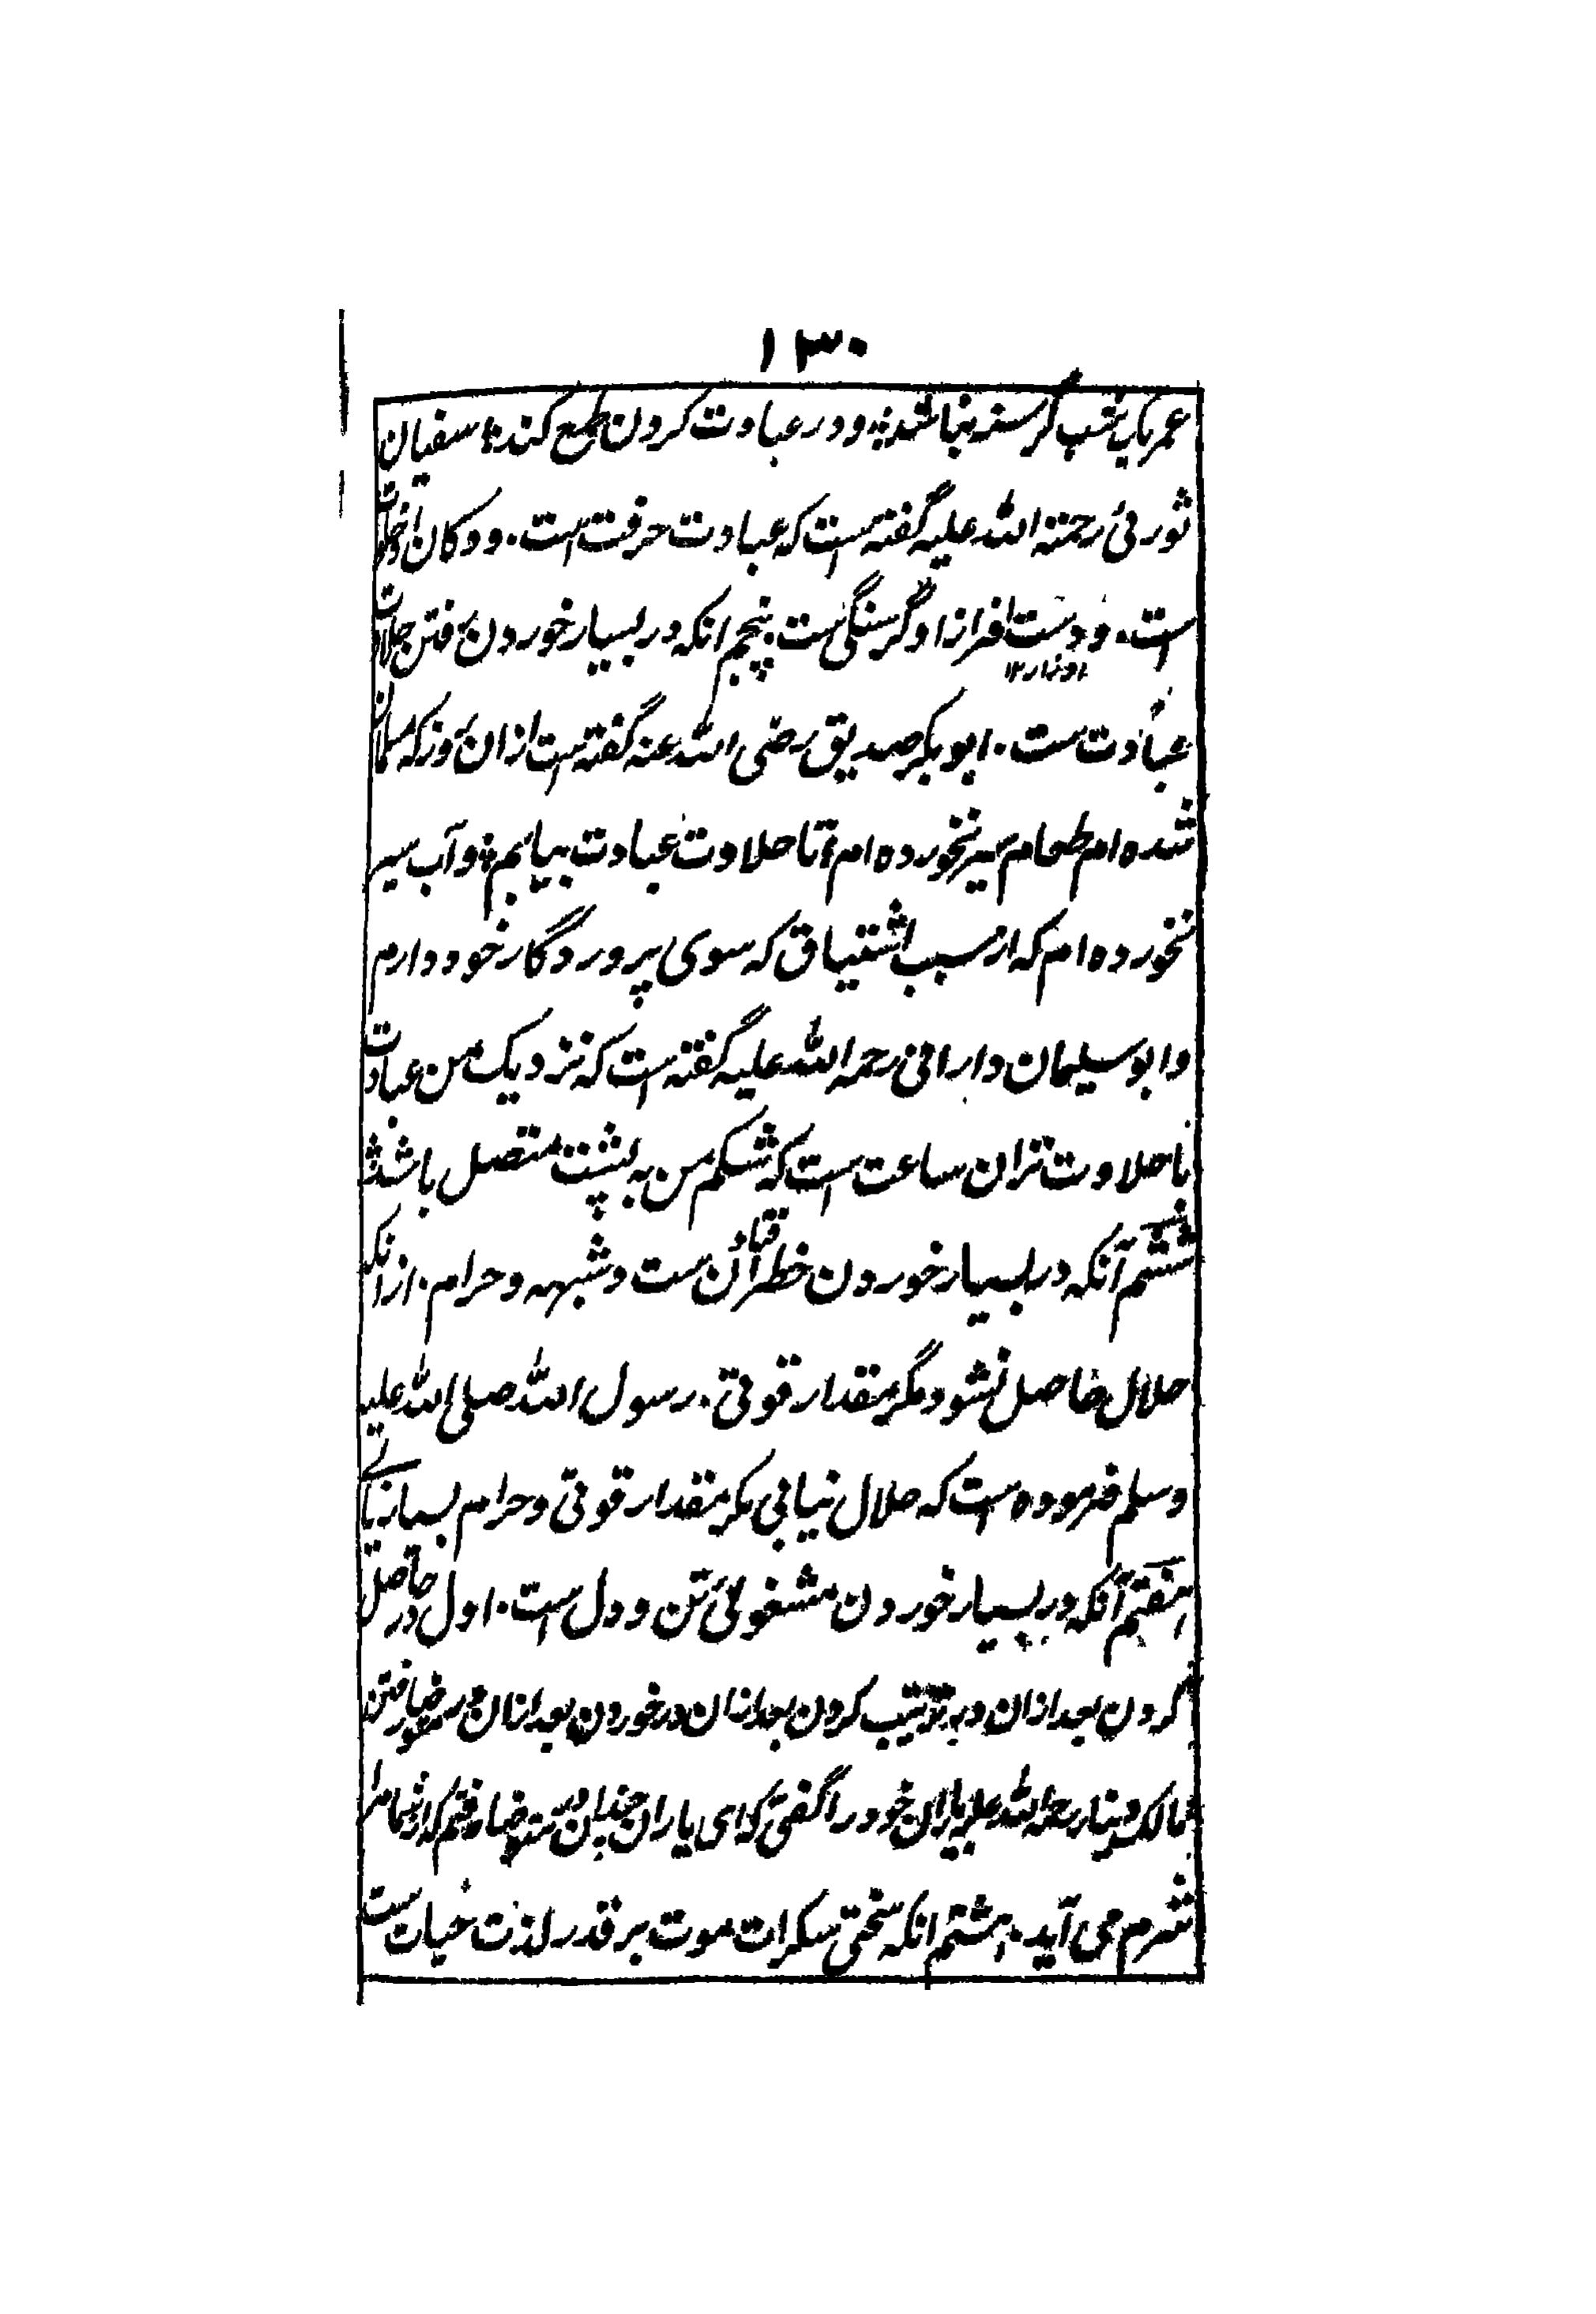 ۱۳۰
عمر یک شب گرسنه نباشد؛ و در عبادت کردن طمع کند؛ سفیان
ثوری رحمته الله علیه گفته است که عبادت حرفت است. و دکان او خلوت
است. و دست افزار او گرسنگی ست. پنجم انکه در بسیار خوردن رفتن حلاوت
اوزار ۱۲
عبادت ست. ابوبکر صدیق رضی الله عنه گفته است از ان روز که مسلمان
شده ام طعام سیر نخورده ام تا حلاوت عبادت بیابم؛ و آب سیر
نخورده ام که از سبب اشتیاق که سوی پروردگار خود دارم
وابو سلیمان دارانی رحمه الله علیه گفته است که نزدیک من عبادت
با حلاوت تر ان ساعت است که شکم من به پشت متصل باشد
ششم آنکه در بسیار خوردن خطر افتادن ست و شبهه و حرام. از انکه
حلال حاصل نشود مگر بمقدار قوتی. رسول الله صلی الله علیه
وسلم فرموده است که حلال نیابی مگر بمقدار قوتی و حرام بسیار یابی
هفتم آنکه در بسیار خوردن مشغولی تن و دل است. اول در حاصل
کردن بعد ازان در ترتیب کردن بعد ازان در خوردن بعد ازان
مالک دینار رحمه الله علیه یاران خود را گفتی که ای یاران چندان رفتم که از شما مرا
شرم می آید. هشتم انکه سختی سکرات موت بر قدر لذت حیات ست